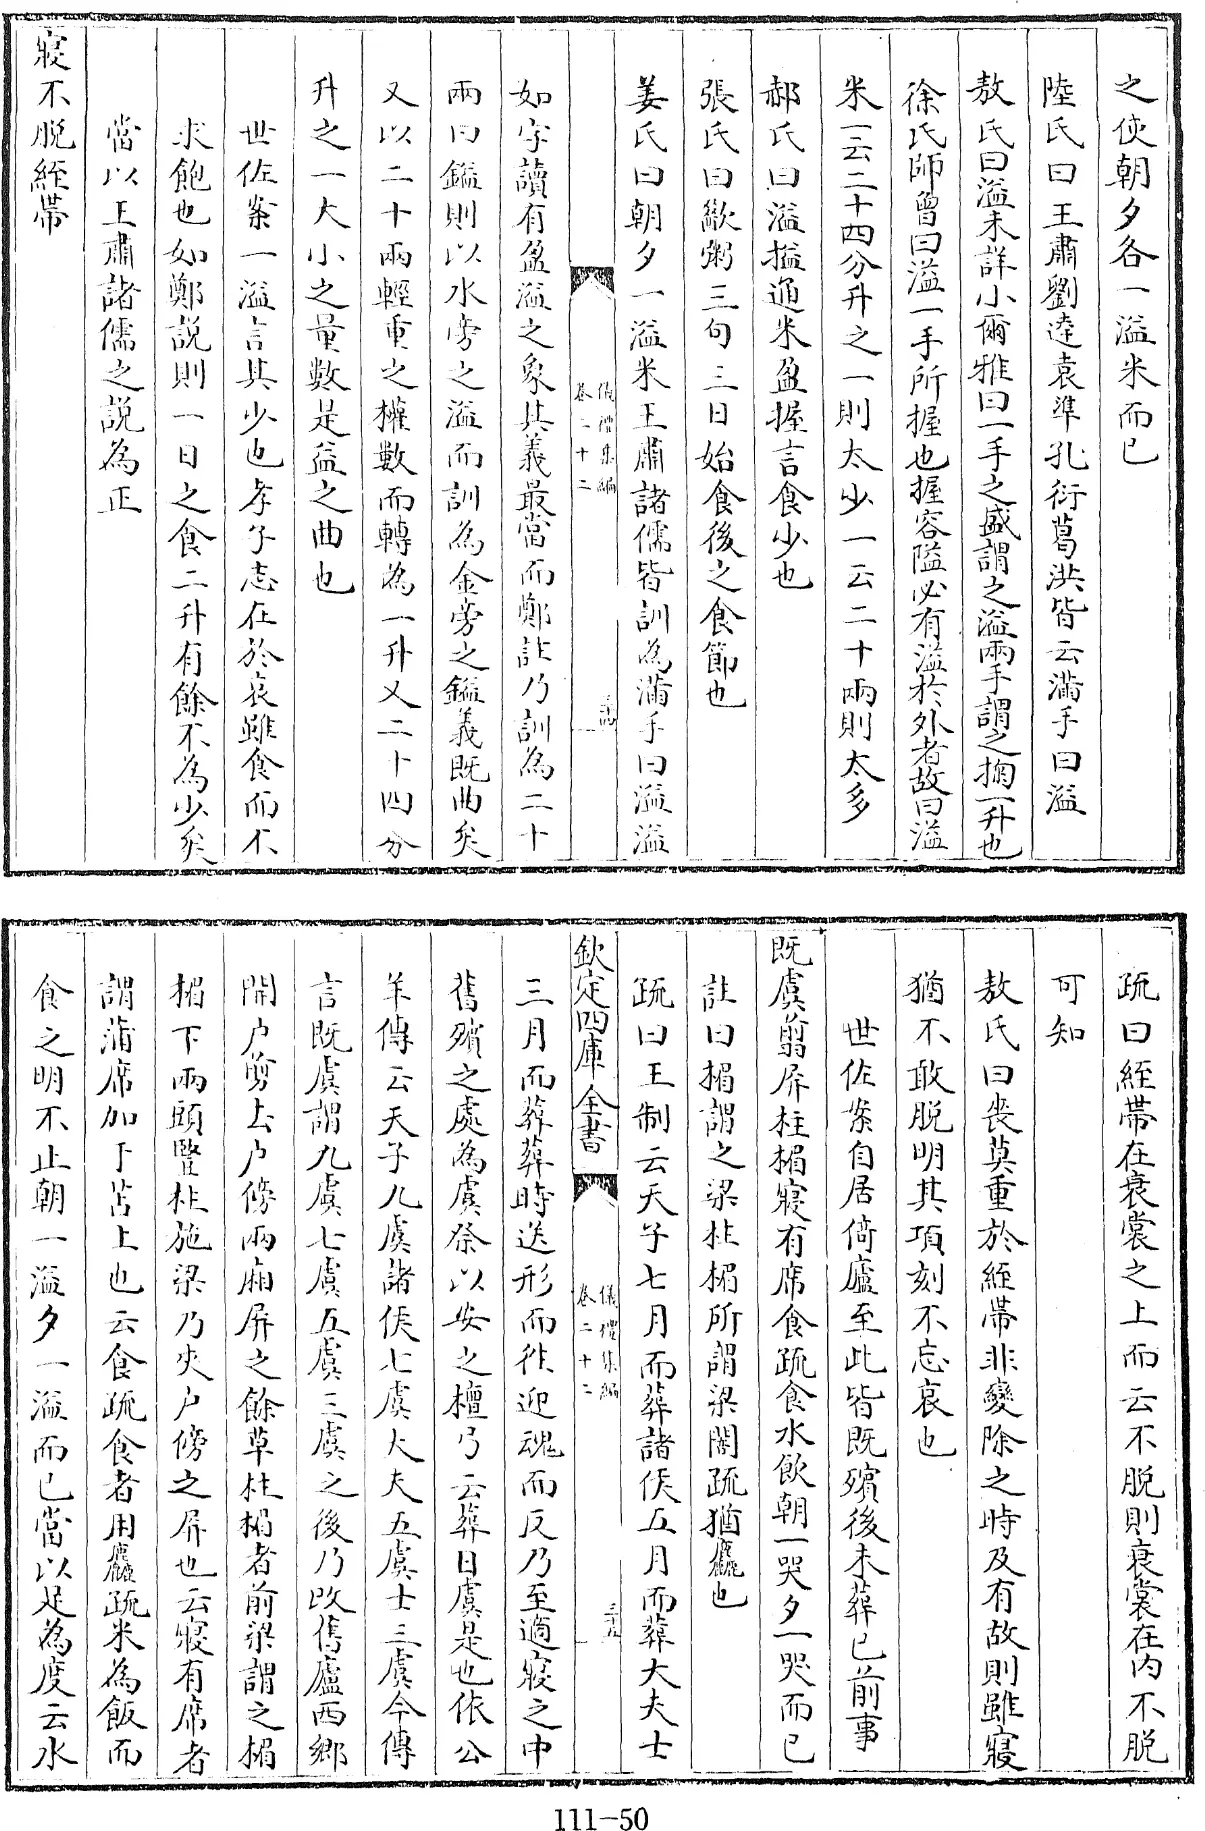 之使朝夕各一溢米而已
陸氏曰王肅劉逵袁準孔衍葛洪皆云滿手曰溢
敖氏曰溢未詳小爾雅曰一手之盛謂之溢兩手謂之掬一升也
徐氏師曾曰溢一手所握也握容隘必有溢於外者故曰溢
米一云二十四分升之一則太少一云二十兩則太多
郝氏曰溢搤通米盈握言食少也
張氏曰歠粥三句三日始食後之食節也
姜氏曰朝夕一溢米王肅諸儒皆訓為滿手曰溢溢
儀禮集編
卷二十二
如字讀有盈溢之象其義最當而鄭註乃訓為二十
兩曰鎰則以水旁之溢而訓為金旁之鎰義既曲矣
又以二十兩輕重之權數而轉為一升又二十四分
升之一大小之量數是益之曲也
世佐案一溢言其少也孝子志在於哀雖食而不
求飽也如鄭說則一日之食二升有餘不為少矣
當以王肅諸儒之說為正
寢不脫絰帶
疏曰絰帶在衰裳之上而云不脫則衰裳在內不脫
可知
敖氏曰喪莫重於絰帶非變除之時及有故則雖寢
猶不敢脫明其項刻不忘哀也
世佐案自居倚廬至此皆既殯後未葬已前事
既虞翦屏柱楣寢有席食疏食水飲朝一哭夕一哭而已
註曰楣謂之梁柱楣所謂梁闇疏猶麤也
疏曰王制云天子七月而葬諸侯五月而葬大夫士
欽定四庫全書
儀禮集編
卷二十二
三十五
三月而葬葬時送形而往迎魂而反乃至適寢之中
舊殯之處為虞祭以安之檀弓云葬日虞是也依公
羊傳云天子九虞諸侯七虞大夫五虞士三虞今傳
言既虞謂九虞七虞五虞三虞之後乃改舊廬西鄉
開户剪去户傍兩廂屏之餘草柱楣者前梁謂之楣
楣下兩頭豎柱施梁乃夾户傍之屏也云寢有席者
謂蒲席加于苫上也云食疏食者用麤疏米為飯而
食之明不止朝一溢夕一溢而已當以足為度云水
111-50